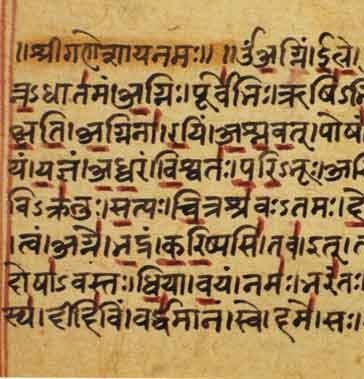 ॥श्रीगणेशायनमः॥ ॥ॐअग्निं।ईळे।
त्नऽधातमं।अग्निः।पूर्वेभिः।ऋषिऽभि
क्षति।अग्निना।रयिं।अश्नवत्।पोषं
यं।यज्ञं।अध्वरं।विश्वतः।परिऽभूः।असि
विऽक्रतुः।सत्यः।चित्रश्रवःऽतमः।दे
।त्वं।अग्ने।भद्रं।करिष्यसि।तव।इत्।त
दोषाऽवस्तः।धिया।वयं।नमः।भरंतः।
स्य।दीदिविं।वर्द्धमानं।स्वे।दमे।सः।